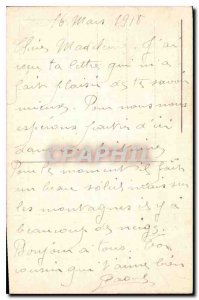 16 Mars 1918
Chère Madeleine. J'ai
reçu ta lettre qui m'a
fait plaisir de te savoir
mieux. Pour nous nous
espérons partir d'ici
dans
Pour le moment il fait
un beau soleil mais sur
les montagnes il y a
beaucoup de neige.
Bonjour à tous. Ton
cousin qui t'aime bien